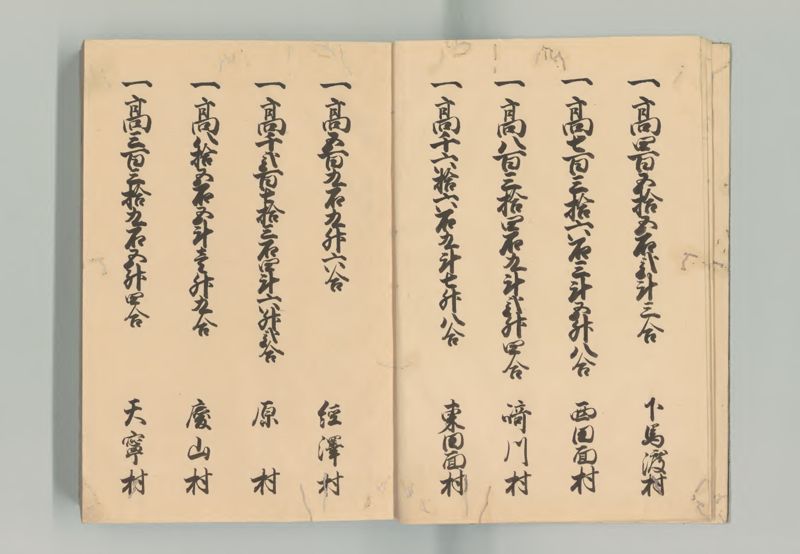 一高四百五拾五石弐斗三合 下馬渡村
一高七百三拾六石三斗五升八合 西田面村
一高八百三拾四石九斗弐升四合 崎川村
一高千六拾六石九斗七升八合 東田面村
一高五百九石九升六合 経澤村
一高千弐百七拾三石四斗六升弐合 原村
一高八拾五石五斗壱升九合 慶山村
一高三百三拾九石五升四合 天寧村